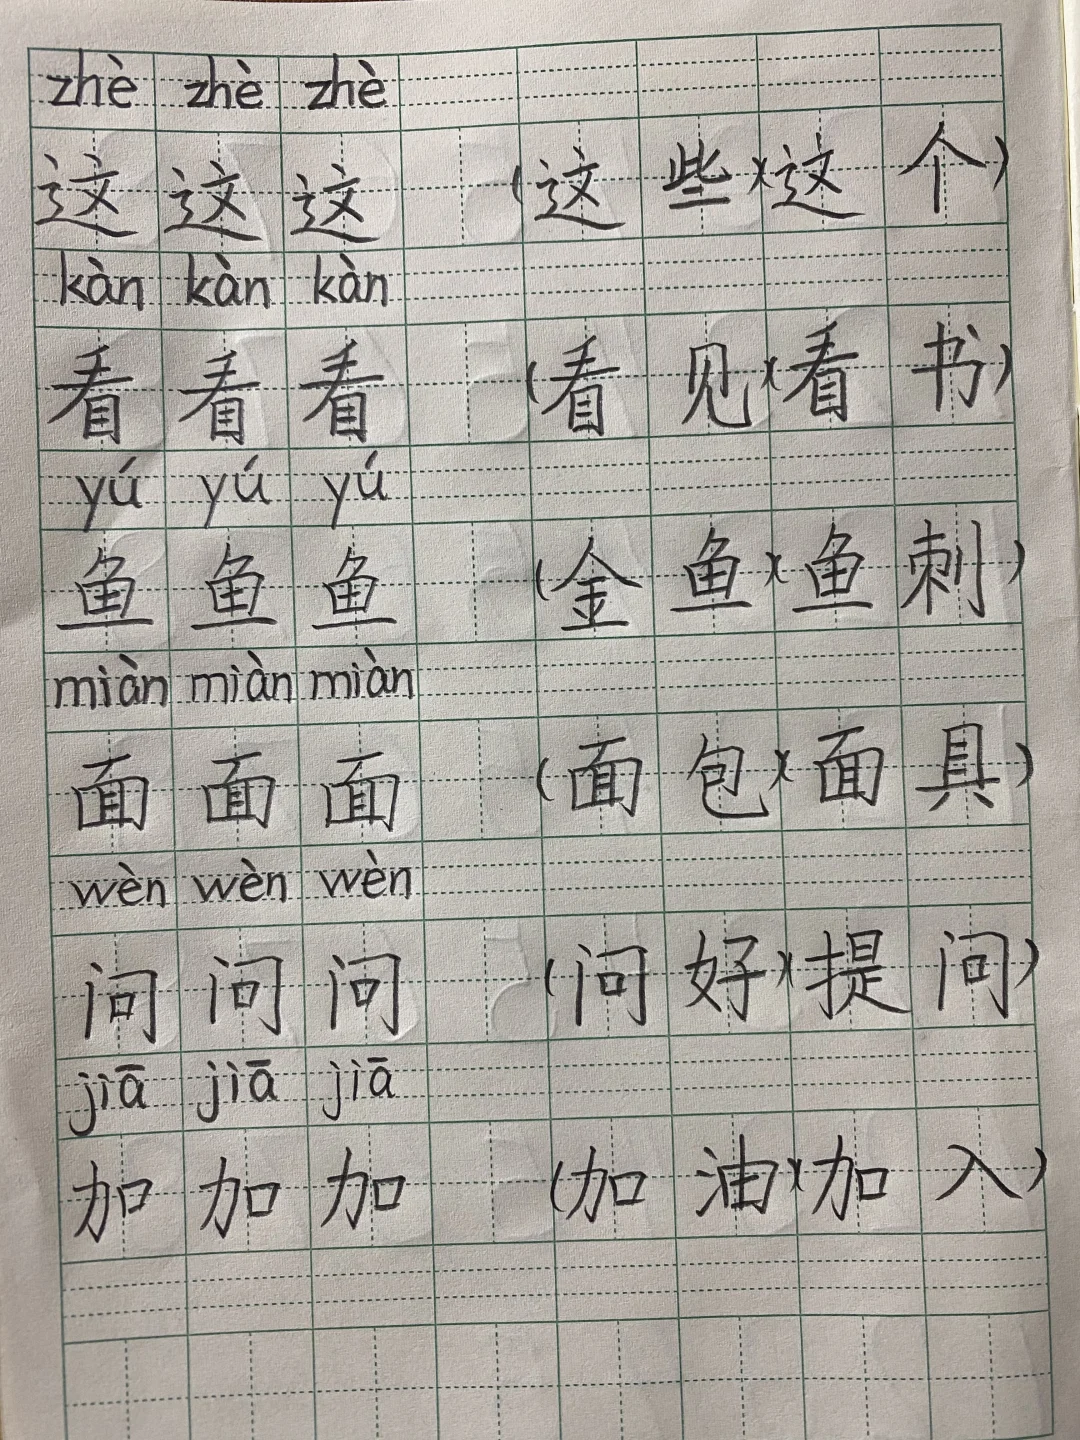 zhè zhè zhè
这 这 这 (这 些)(这 个)
kàn kàn kàn
看 看 看 (看 见)(看 书)
yú yú yú
鱼 鱼 鱼 (金 鱼)(鱼 刺)
miàn miàn miàn
面 面 面 (面 包)(面 具)
wèn wèn wèn
问 问 问 (问 好)(提 问)
jiā jiā jiā
加 加 加 (加 油)(加 入)